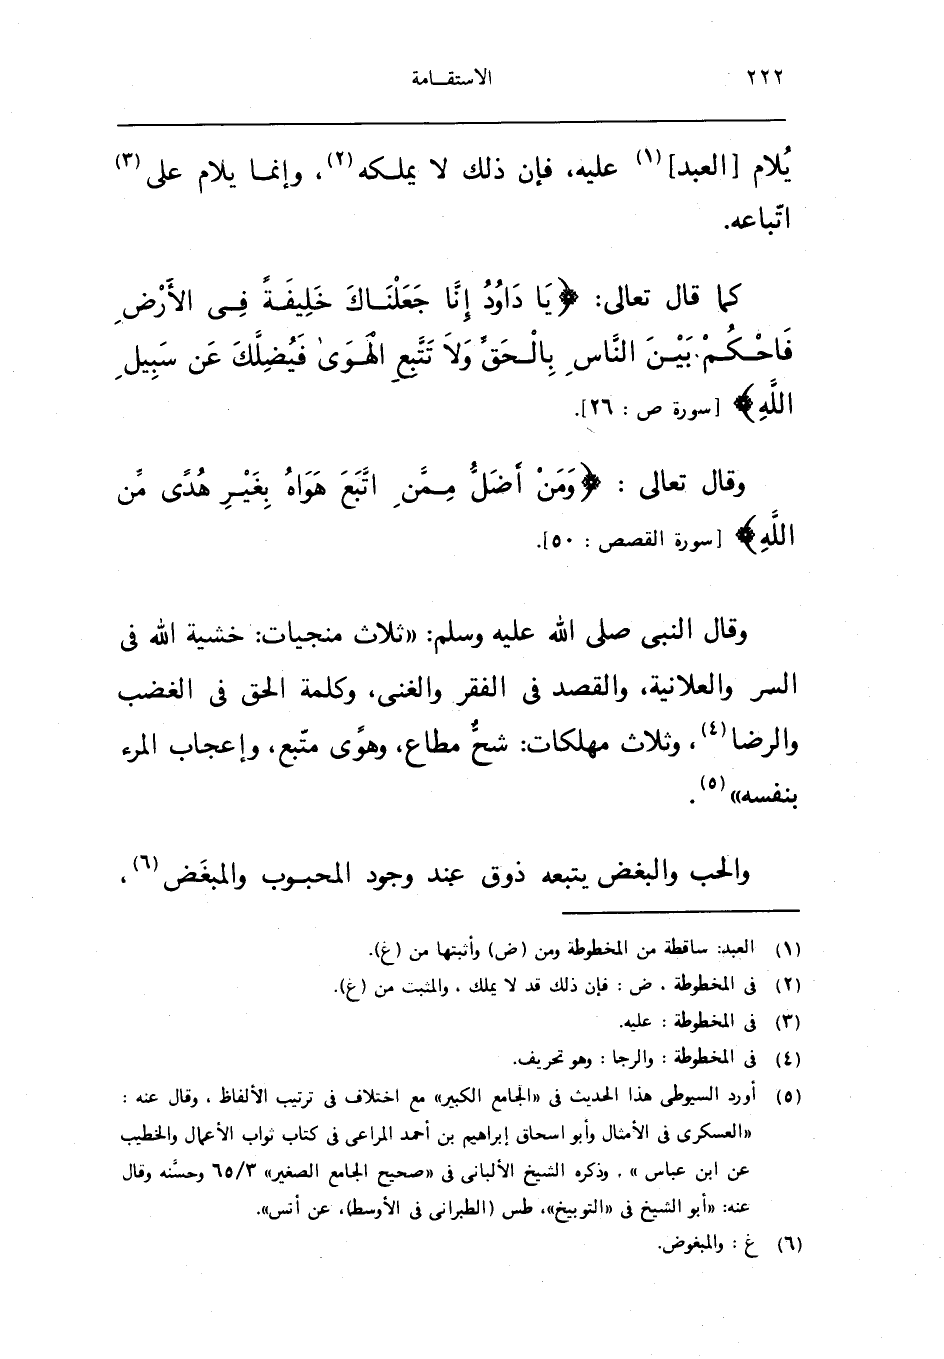 ٢٢٢
الاستقـامة
يُلام [العبد](١) عليه، فإن ذلك لا يملـكه(٢)، وإنمـا يلام على(٣)
اتّباعه.
كما قال تعالى: ﴿يَا دَاوُدُ إِنَّا جَعَلْنَـاكَ خَلِيفَـةً فِـى الأَرْضِ
فَاحْـكُـمْ بَيْـنَ النَّاسِ بِالْـحَقِّ وَلاَ تَتَّبِعِ الْهَـوَىٰ فَيُضِلَّكَ عَن سَبِيلِ
اللَّهِ﴾ [سورة ص : ٢٦].
وقال تعالى : ﴿وَمَنْ أَضَلُّ مِـمَّنِ اتَّبَعَ هَوَاهُ بِغَيْـرِ هُدًى مِّن
اللَّهِ﴾ [سورة القصص : ٥٠].
وقال النبى صلى الله عليه وسلم: «ثلاث منجيات: خشية الله فى
السر والعلانية، والقصد فى الفقر والغنى، وكلمة الحق فى الغضب
والرضا(٤)، وثلاث مهلكات: شحٌّ مطاع، وهوًى متّبع، وإعجاب المرء
بنفسه»(٥).
والحب والبغض يتبعه ذوق عند وجود المحبـوب والمبغَض(٦)،
(١) العبد: ساقطة من المخطوطة ومن (ض) وأثبتها من (غ).
(٢) فى المخطوطة ، ض : فإن ذلك قد لا يملك ، والمثبت من (غ).
(٣) فى المخطوطة : عليه.
(٤) فى المخطوطة : والرجا : وهو تحريف.
(٥) أورد السيوطى هذا الحديث فى «الجامع الكبير» مع اختلاف فى ترتيب الألفاظ ، وقال عنه :
«العسكرى فى الأمثال وأبو اسحاق إبراهيم بن أحمد المراعى فى كتاب ثواب الأعمال والخطيب
عن ابن عباس » . وذكره الشيخ الألبانى فى «صحيح الجامع الصغير» ٦٥/٣ وحسَّنه وقال
عنه: «أبو الشيخ فى «التوبيخ»، طس (الطبرانى فى الأوسط)، عن أنس».
(٦) غ : والمبغوض.